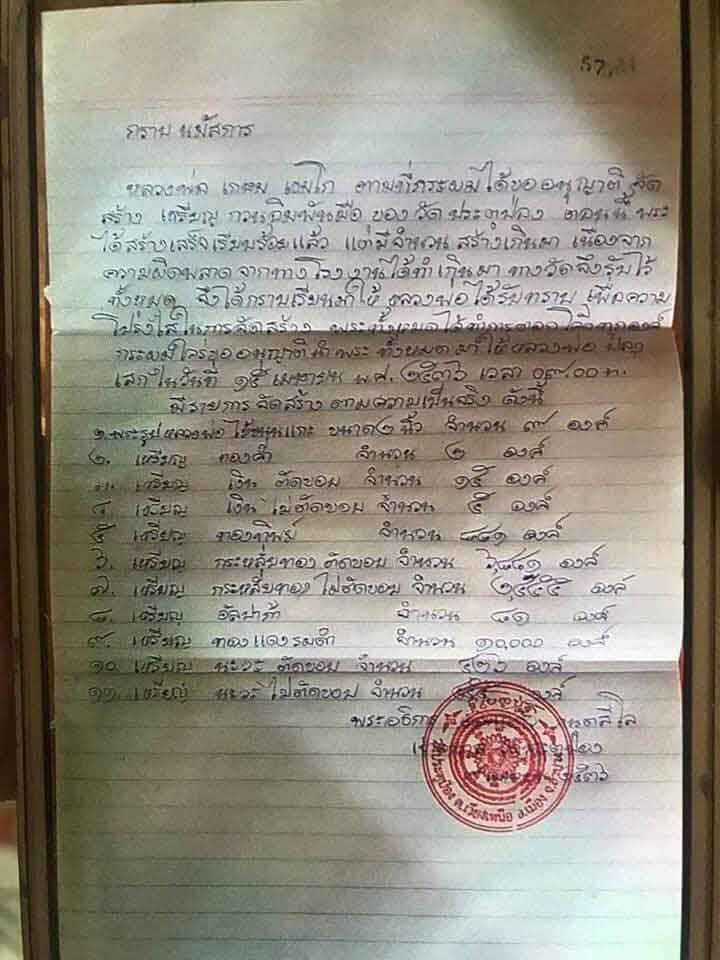 กราบ นมัสการ
หลวงพ่อ เกษม เขมโก ตามที่กระผมได้ขออนุญาติ จัด
สร้าง เหรียญ กวนอิมพันมือ ของ วัด ประตูป่อง ตอนนี้ พระ
ได้สร้างเสร็จเรียบร้อยแล้ว แต่มีจำนวน สร้างเกินมา เนื่องจาก
ความผิดพลาด จากทางโรงงานได้ทำเกินมา ทางวัดจึงรับไว้
ทั้งหมด จึงได้กราบเรียนมาให้ หลวงพ่อ ได้รับทราบ เพื่อความ
โปร่งใสในการจัดสร้าง พระทั้งหมดได้ทำการตอก โค๊ดทุกองค์
กระผมใคร่ขออนุญาตินำพระ ทั้งหมดมาให้หลวงพ่อ ปลุก
เสกในวันที่ ๑๕ เมษายน พ.ศ. ๒๕๓๖ เวลา ๐๙.๐๐ น.
มีรายการ จัดสร้าง ตามความเป็นจริง ดังนี้
๑. พระรูป หลวงพ่อ ไม้ขนุนแกะ ขนาด ๒ นิ้ว จำนวน ๙ องค์
๒. เหรียญ ทองคำ จำนวน ๒ องค์
๓. เหรียญ เงิน ตัดขอบ จำนวน ๑๕ องค์
๔. เหรียญ เงิน ไม่ตัดขอบ จำนวน ๕ องค์
๕. เหรียญ ทองทิพย์ จำนวน ๔๔๑ องค์
๖. เหรียญ กระหลั่ยทอง ตัดขอบ จำนวน องค์
๗. เหรียญ กระหลั่ยทอง ไม่ตัดขอบ จำนวน องค์
๘. เหรียญ อัลปาก้า จำนวน ๘๑ องค์
๙. เหรียญ ทองแดงรมดำ จำนวน ๑๐,๐๐๐ องค์
๑๐. เหรียญ นะวะ ตัดขอบ จำนวน องค์
๑๑. เหรียญ นะวะ ไม่ตัดขอบ จำนวน องค์
พระอธิการ
๒๕๓๖
วัดประตูป่อง ต.เวียงเหนือ อ.เมือง จ.ลำปาง